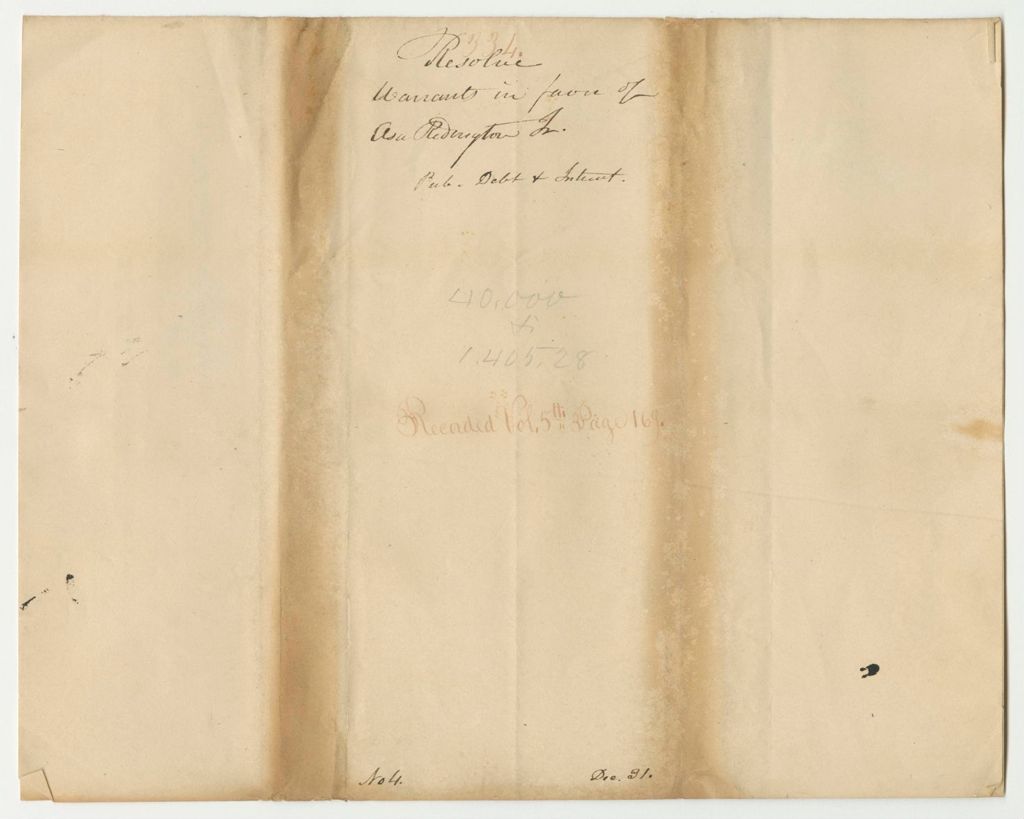 334.
Resolve
Warrants in favor of
Asa Redington Jr.
Pub. Debt & Interest.
40.000
&
1.405.28
Recorded Vol, 5th Page
No 4.
Dec. 31.